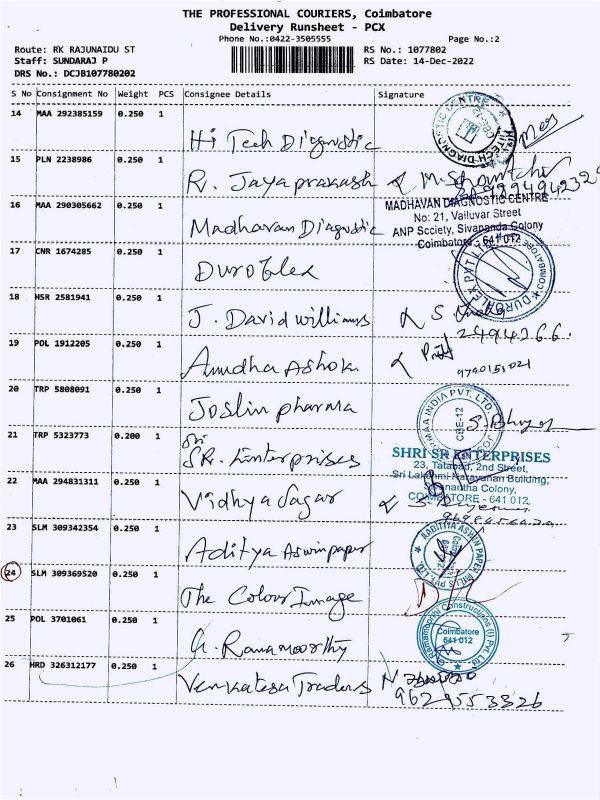 THE PROFESSIONAL COURIERS, Coimbatore
Delivery Runsheet - PCX
Phone No.:0422-3505555 Page No.:2
Route: RK RAJUNAIDU ST RS No.: 1077802
Staff: SUNDARAJ P RS Date: 14-Dec-2022
DRS No.: DCJB107780202
S No Consignment No Weight PCS Consignee Details Signature
14 MAA 292385159 0.250 1 Hi Tech Diagnostic
HITECH DIAGNOSTIC CENTRE
15 PLN 2238986 0.250 1 R. Jayaprakash
16 MAA 290305662 0.250 1 Madhavan Diagnostic
MADHAVAN DIAGNOSTIC CENTRE
No: 21, Valluvar Street
ANP Scciety, Sivananda Colony
Coimbatore - 641 012
17 CNR 1674285 0.250 1 Duroflex
DUROFLEX PVT LTD COIMBATORE
18 HSR 2581941 0.250 1 J. David williams
19 POL 1912205 0.250 1 Anudha Ashok
9740151021
20 TRP 5808091 0.250 1 Joslin pharma
PHARMAA INDIA PVT. LTD.
CBE-12
21 TRP 5323773 0.200 1 Sri
SR. Enterprises
SHRI SR ENTERPRISES
23, Tatabad, 2nd Street,
Sri Lakshmi Narayanan Building,
COIMBATORE - 641 012.
22 MAA 294831311 0.250 1 Vidhya Sagar
23 SLM 309342354 0.250 1 Aditya Aswinpaper
AADITHA ASWIN PAPER MILLS PVT. LTD.
24 SLM 309369520 0.250 1 The Colour Image
25 POL 3701061 0.250 1 G. Ramamoorthy
Constructions (I) Pvt. Ltd.
Coimbatore
641 012
26 HRD 326312177 0.250 1 Venkatesa Traders
9629553326